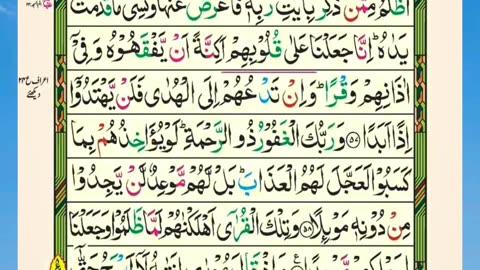 اَظْلَمُ مِمَّنْ ذُكِّرَ بِاٰيٰتِ رَبِّهٖ فَاَعْرَضَ عَنْهَا وَنَسِيَ مَا قَدَّمَتْ
يَدٰهُ ؕ اِنَّا جَعَلْنَا عَلٰى قُلُوْبِهِمْ اَكِنَّةً اَنْ يَّفْقَهُوْهُ وَفِيْۤ
اٰذَانِهِمْ وَقْرًا ؕ وَاِنْ تَدْعُهُمْ اِلَى الْهُدٰى فَلَنْ يَّهْتَدُوْۤا
اِذًا اَبَدًا ﴿۵۷﴾ وَرَبُّكَ الْغَفُوْرُ ذُو الرَّحْمَةِ ؕ لَوْ يُؤَاخِذُهُمْ بِمَا
كَسَبُوْا لَعَجَّلَ لَهُمُ الْعَذَابَ ؕ بَلْ لَّهُمْ مَّوْعِدٌ لَّنْ يَّجِدُوْا
مِنْ دُوْنِهٖ مَوْئِلًا ﴿۵۸﴾ وَتِلْكَ الْقُرٰٓى اَهْلَكْنٰهُمْ لَمَّا ظَلَمُوْا وَجَعَلْنَا